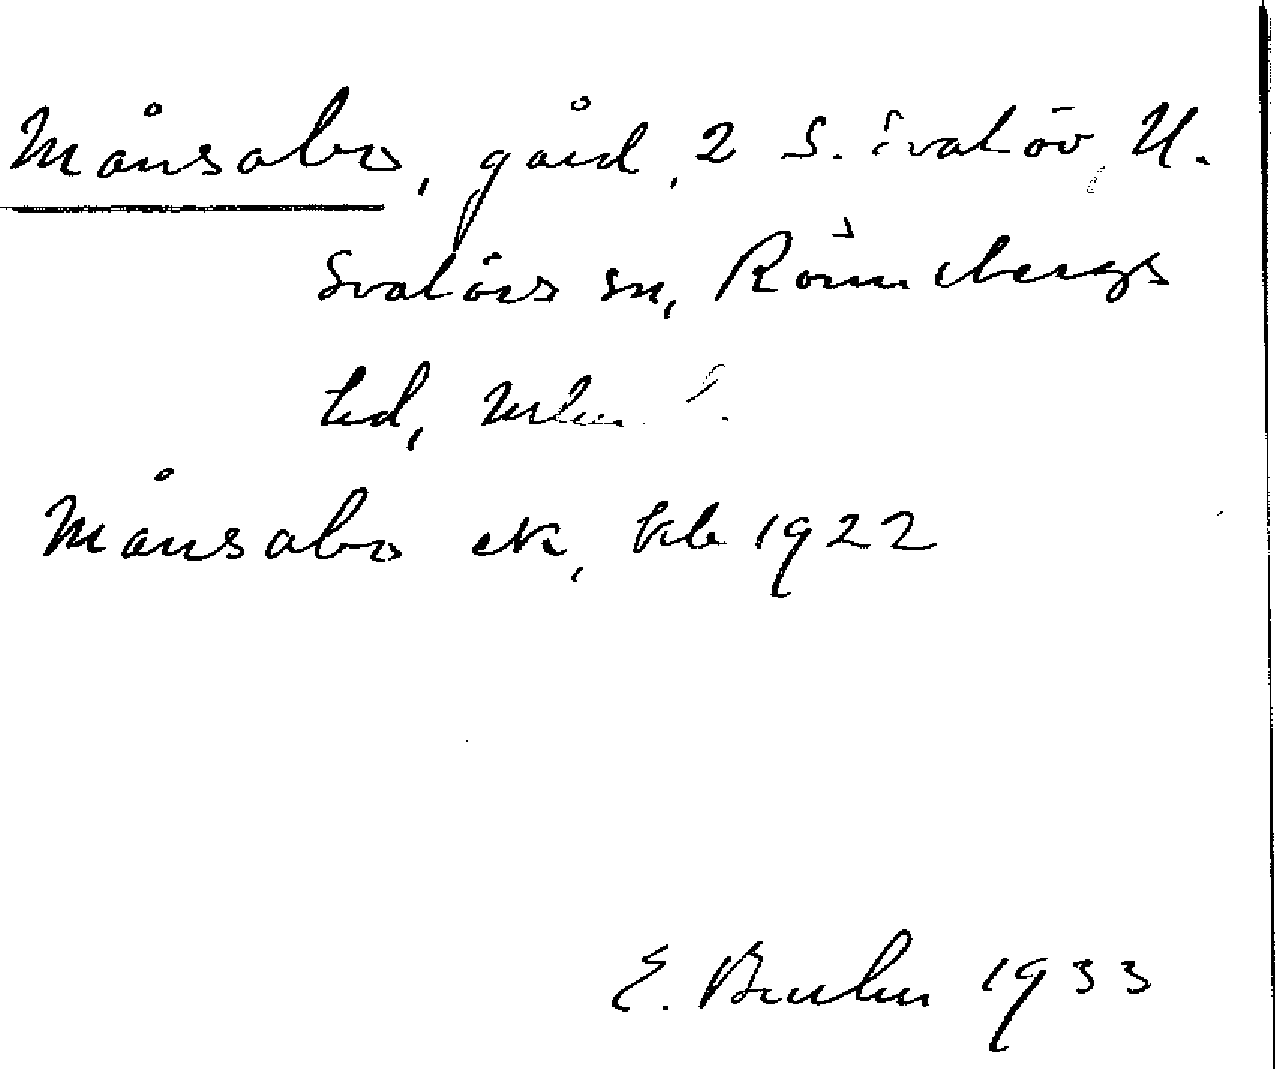 Månsabo, gård, 2 S. Svalöv, N.
Svalövs sn, Rönnebergs
hd, Mlm l.
Månsabo ek, kb 1922
E. Bruhn 1933